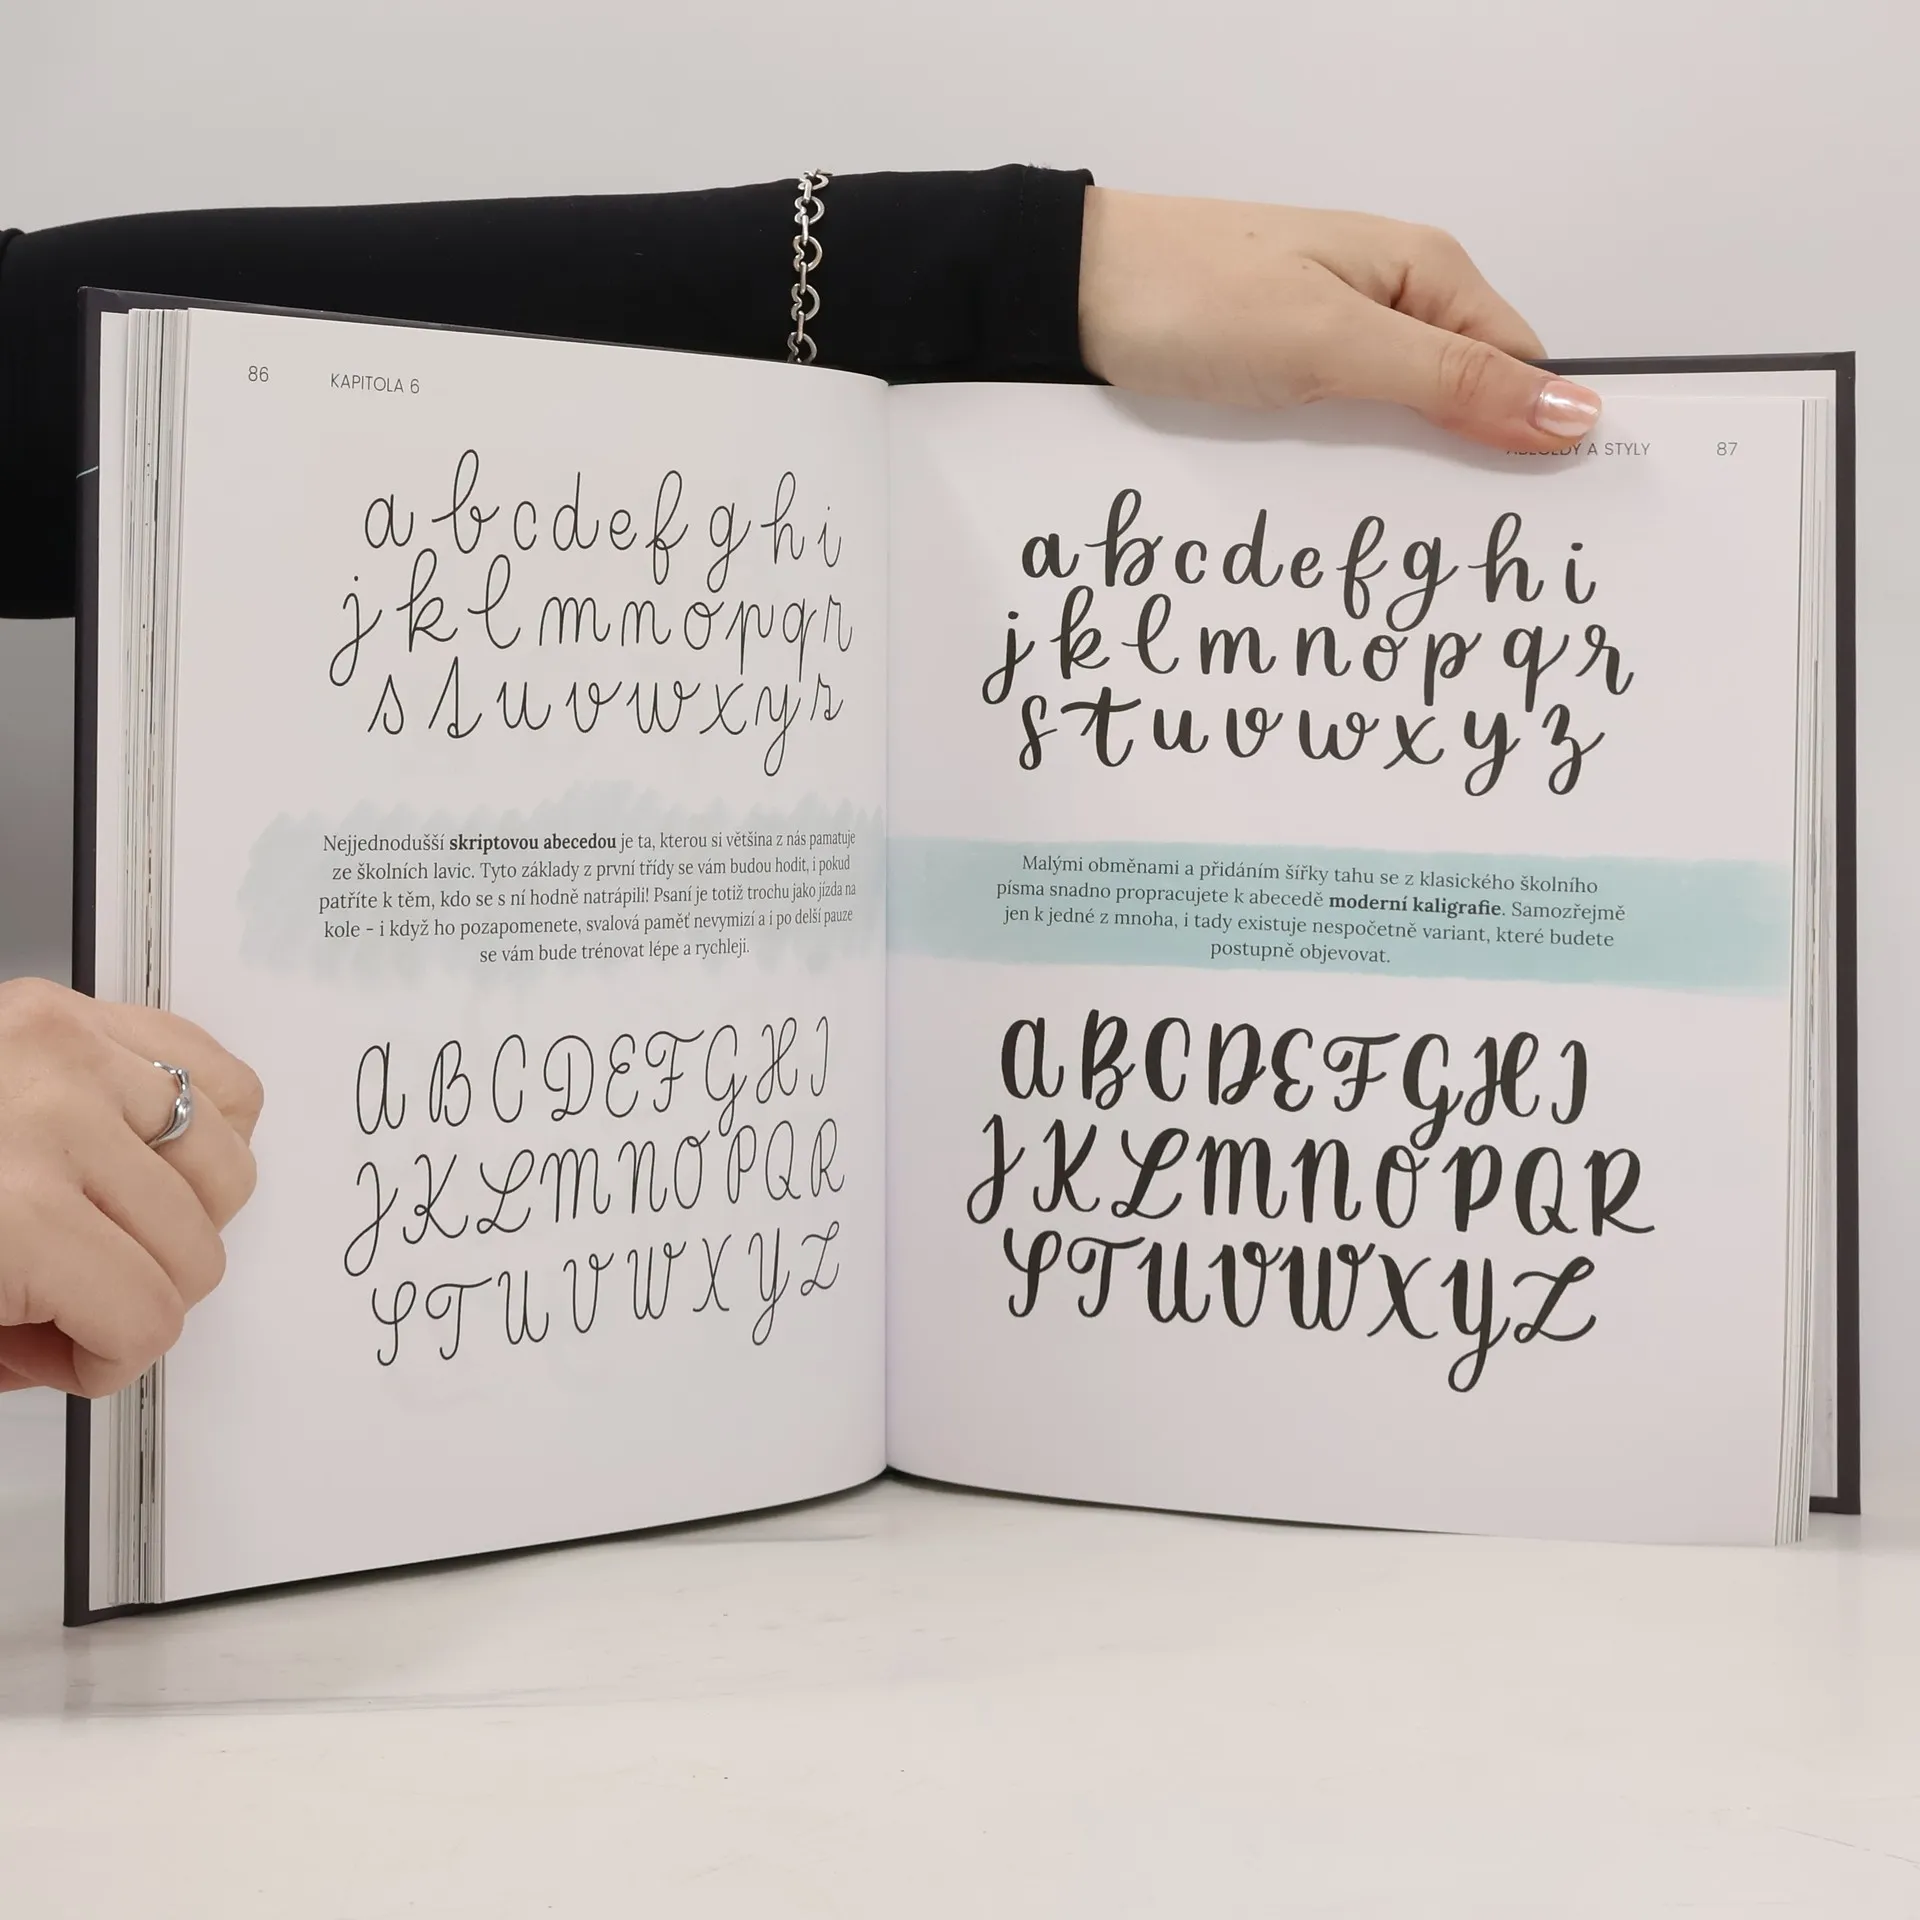 86 KAPITOLA 6
a b c d e f g h i
j k l m n o p q r
s t u v w x y z
Nejjednodušší skriptovou abecedou je ta, kterou si většina z nás pamatuje
ze školních lavic. Tyto základy z první třídy se vám budou hodit, i pokud
patříte k těm, kdo se s ní hodně natrápili! Psaní je totiž trochu jako jízda na
kole – i když ho pozapomenete, svalová paměť nevymizí a i po delší pauze
se vám bude trénovat lépe a rychleji.
A B C D E F G H I
J K L M N O P Q R
S T U V W X Y Z
A STYLY 87
a b c d e f g h i
j k l m n o p q r
s t u v w x y z
Malými obměnami a přidáním šířky tahu se z klasického školního
písma snadno propracujete k abecedě moderní kaligrafie. Samozřejmě
jen k jedné z mnoha, i tady existuje nespočetně variant, které budete
postupně objevovat.
A B C D E F G H I
J K L M N O P Q R
S T U V W X Y Z